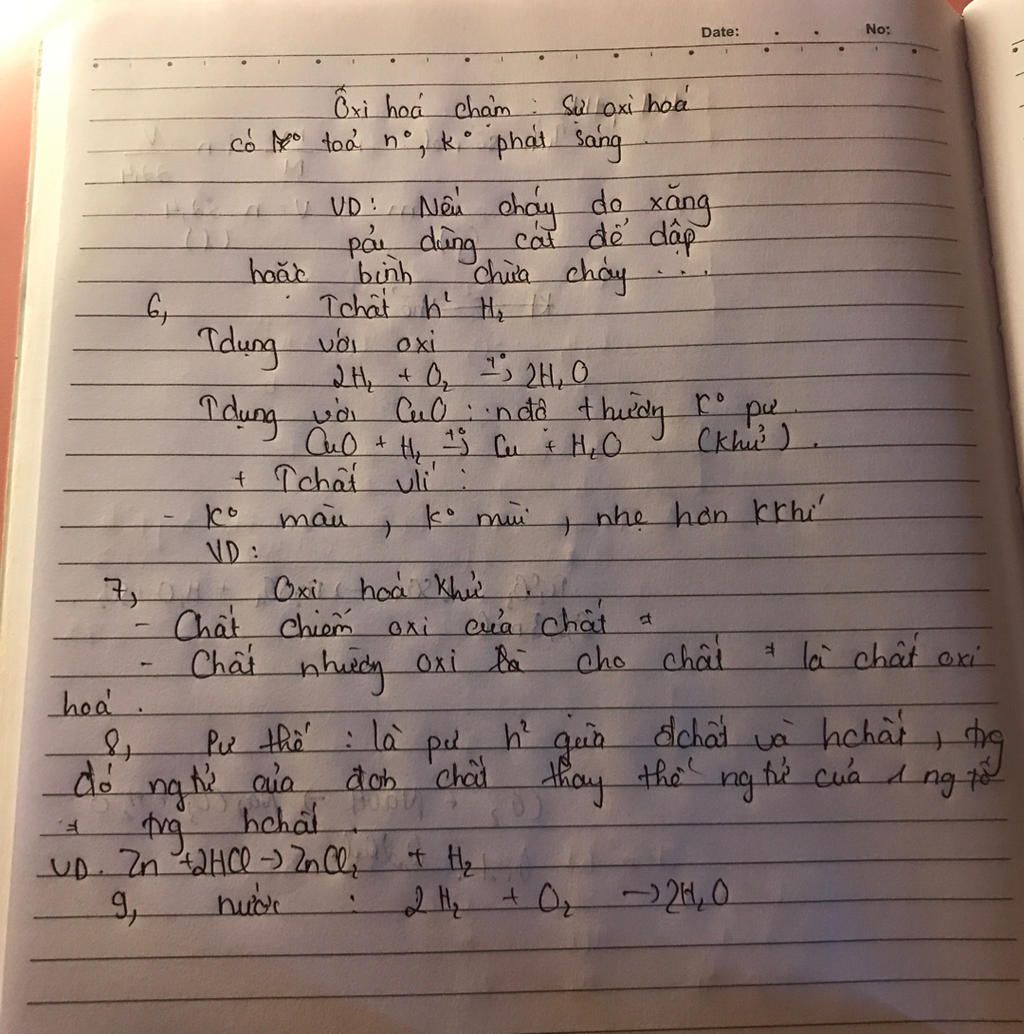 Date: No:
Ôxi hoá chậm : Sự oxi hoá
có toả n°, k° phát sáng
VD: Nếu cháy do xăng
pải dùng cát để dập
hoặc bình chữa cháy ...
6, Tchất h² H₂
Tdụng với oxi
2H₂ + O₂ –t°→ 2H₂O
Tdụng với CuO : nđộ thường k° pư
CuO + H₂ –t°→ Cu + H₂O (khử).
+ Tchất vlí :
- k° màu , k° mùi , nhẹ hơn kkhí
VD :
7, Oxi hoá khử .
- Chất chiếm oxi của chất ≠
- Chất nhường oxi cho chất ≠ là chất oxi
hoá .
8, Pư thế : là pư h² giữa đchất và hchất , trg
đó ng tử của đơn chất thay thế ng tử của 1 ng tố
≠ trg hchất .
VD. Zn + 2HCl → ZnCl₂ + H₂
9, nước : 2H₂ + O₂ → 2H₂O